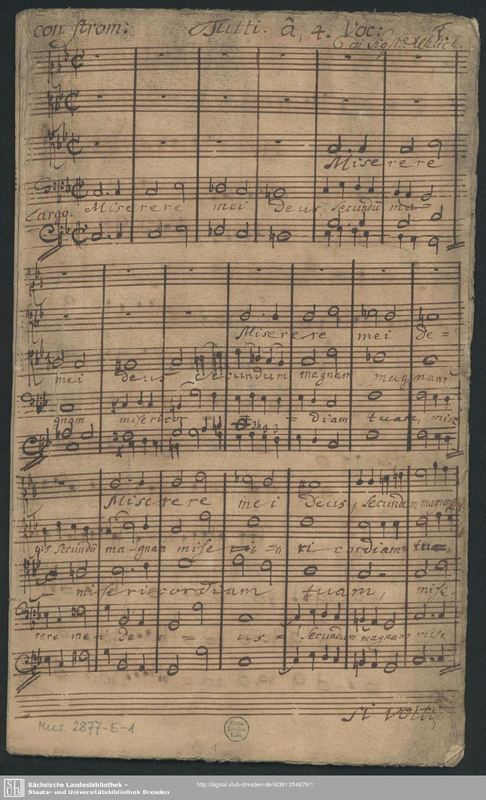 con strom: Tutti. â, 4. Voc:
Miserere
Largo. Miserere mei Deus, secundũ ma
Miserere mei De=
mei deus secundum magnam magnam
gnam misericor = diam tuam, mise
Miserere mei Deus, secundum magnam
secundũ ma-gnam mise ri cordiam tua
misericordiam tuam, mise
rere mei De = us = secundum magnam mise
si volti
Mus. 2877-E-1
1
SLUB
Sächsische Landesbibliothek –
Staats- und Universitätsbibliothek Dresden
http://digital.slub-dresden.de/id391354876/1